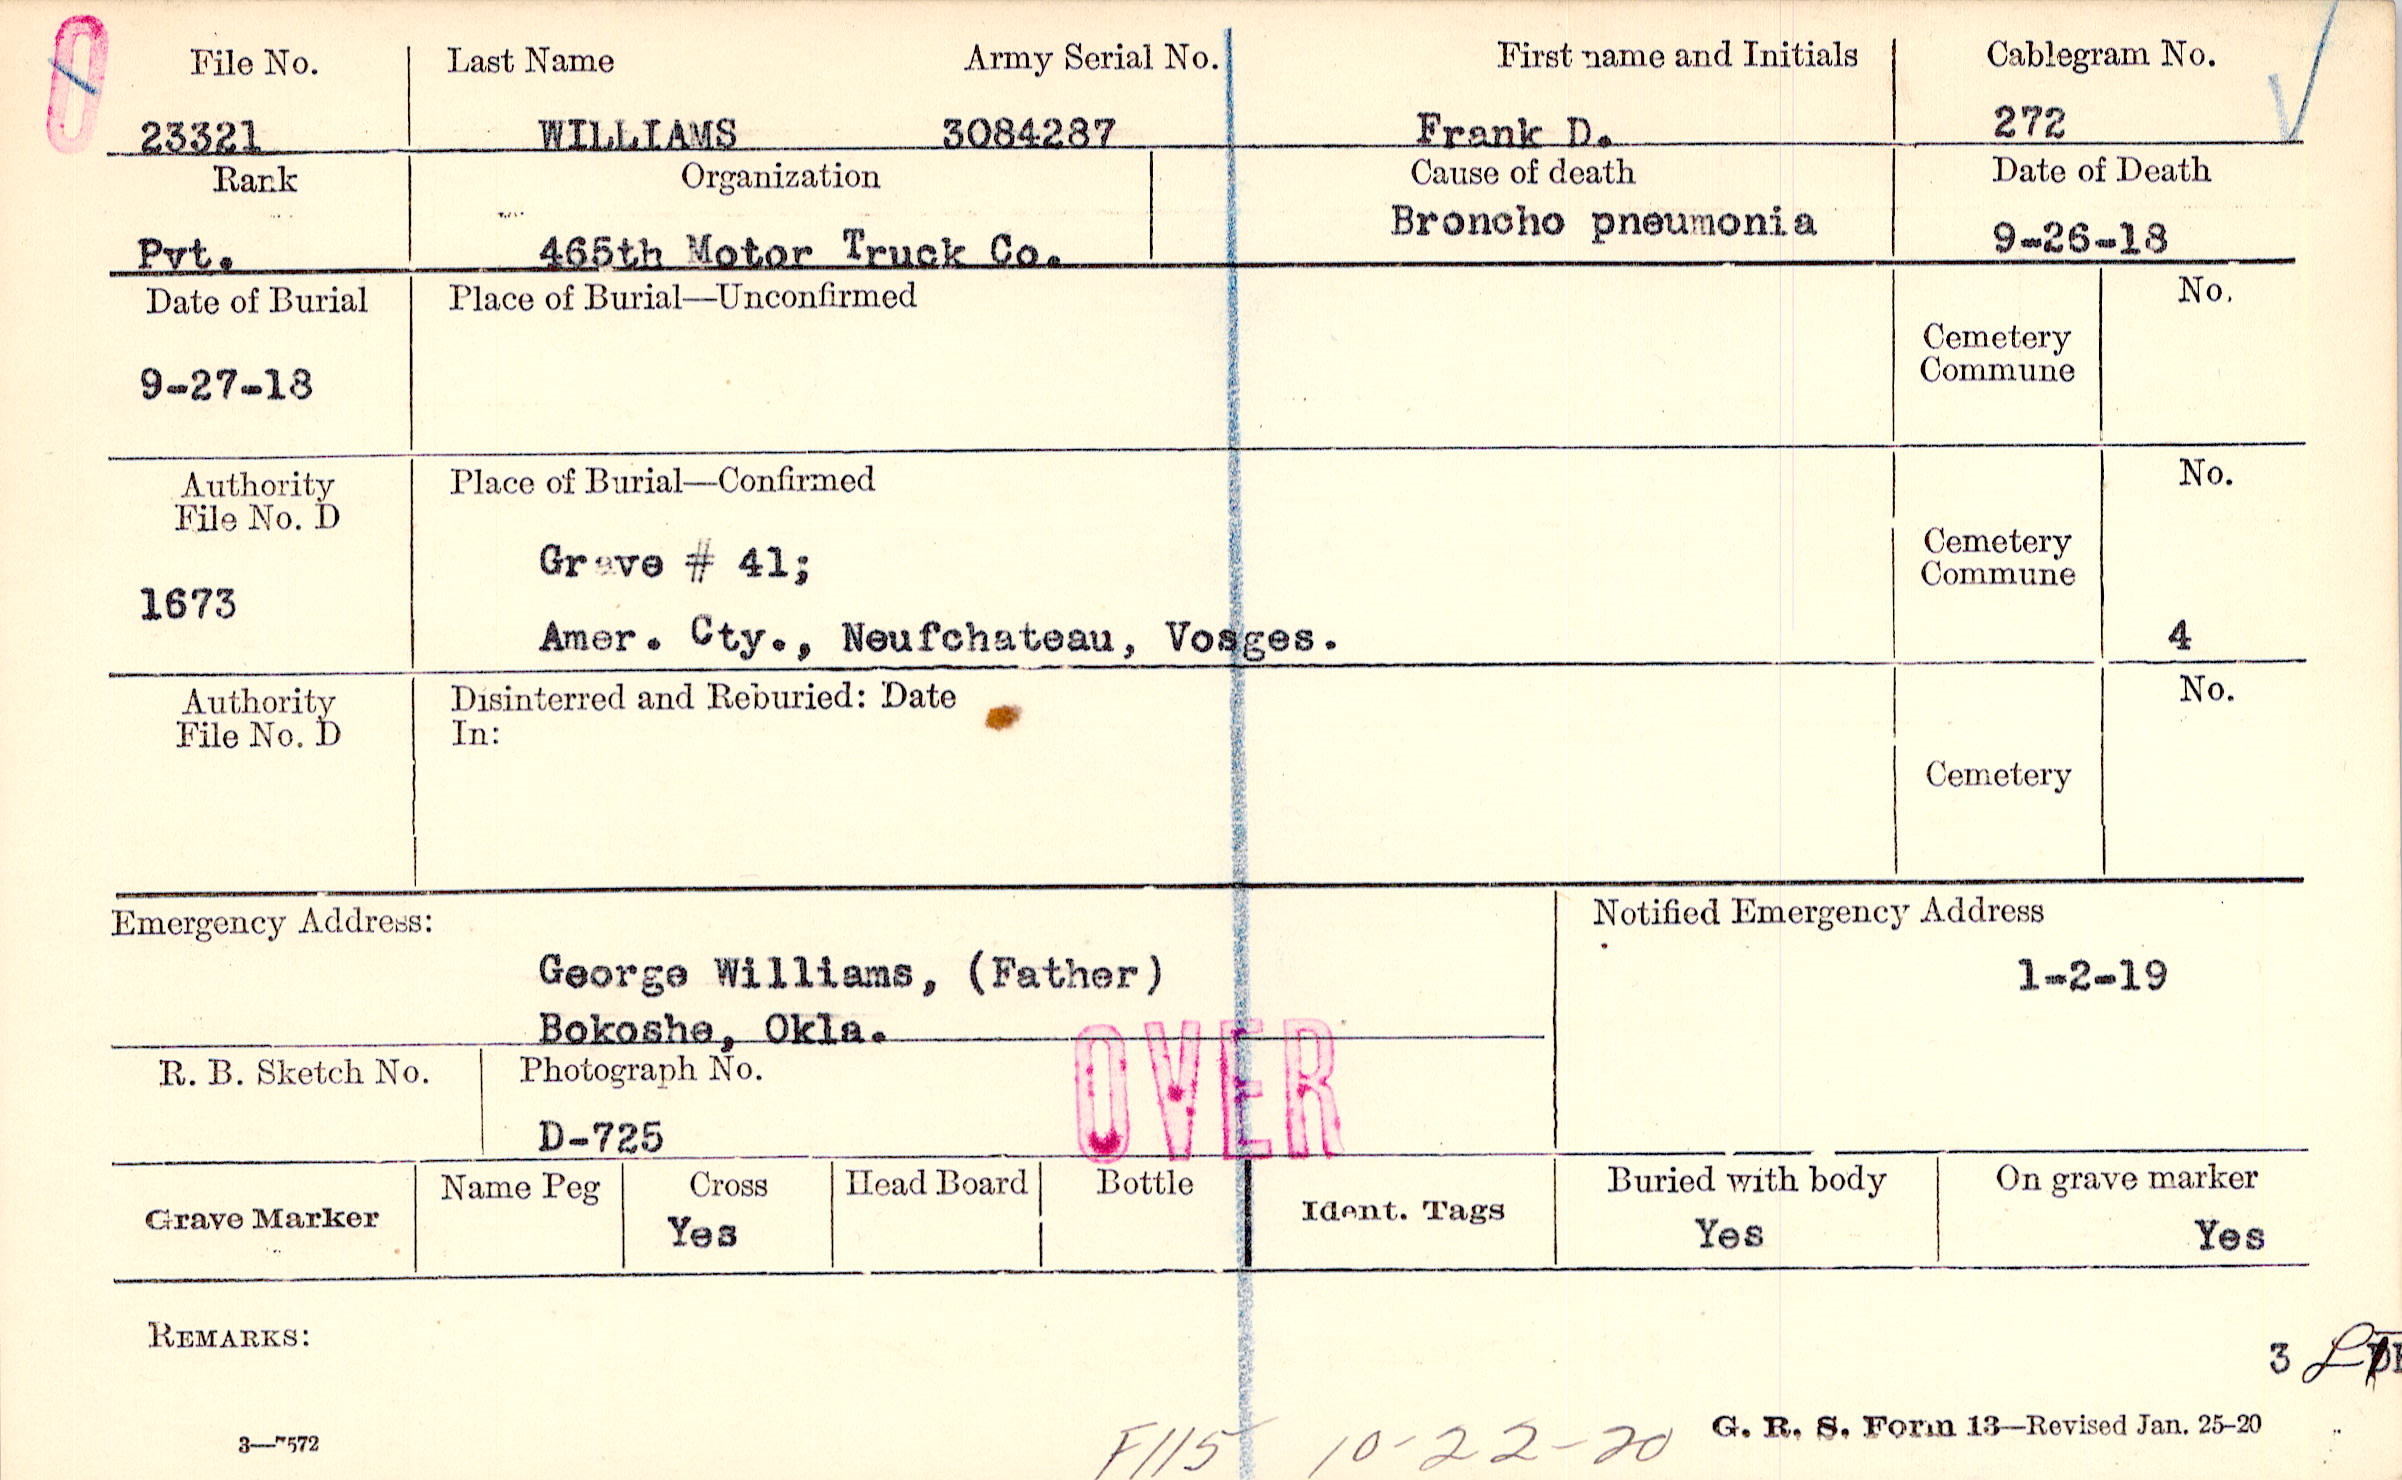 0
File No. Last Name Army Serial No. First name and Initials Cablegram No.
23321 WILLIAMS 3084287 Frank D. 272
Rank Organization Cause of death Date of Death
Pvt. 465th Motor Truck Co. Broncho pneumonia 9-26-18
Date of Burial Place of Burial—Unconfirmed No.
Cemetery
Commune
9-27-18
Authority Place of Burial—Confirmed No.
File No. D
Cemetery
Commune
Grave # 41;
1673
Amer. Cty., Neufchateau, Vosges. 4
Authority Disinterred and Reburied: Date No.
File No. D In:
Cemetery
Emergency Address: Notified Emergency Address
George Williams, (Father) 1-2-19
Bokoshe, Okla.
OVER
R. B. Sketch No. Photograph No.
D-725
Grave Marker Name Peg Cross Head Board Bottle Ident. Tags Buried with body On grave marker
Yes Yes Yes
REMARKS:
3
G. R. S. Form 13—Revised Jan. 25-20
3—7572 F115 10-22-20